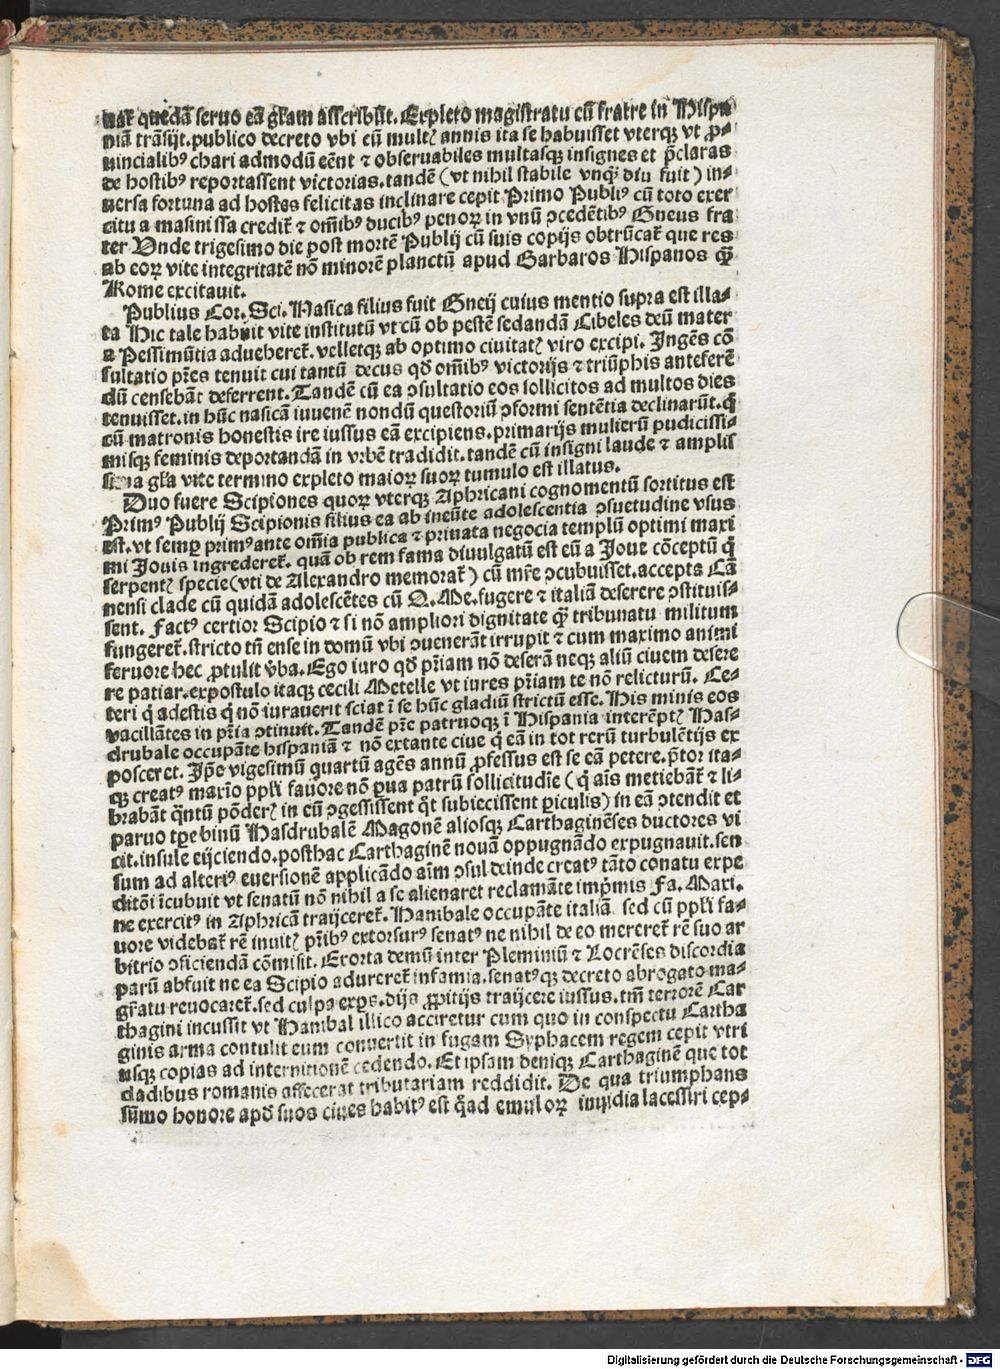 nat quedā seruo eā gl̄am asscribūt. Expleto magistratu cū fratre in Hispa
niā trāsijt. publico decreto vbi cū multꝭ annis ita se habuisset vterqꝫ vt ꝓ⸗
uincialibꝰ chari admodū eēnt ⁊ obseruabiles multasqꝫ insignes et p̄claras
de hostibꝰ reportassent victorias. tandē (vt nihil stabile vnqꝫ diu fuit) in⸗
uersa fortuna ad hostes felicitas inclinare cepit Primo Publiꝰ cū toto exer
citu a masinissa credit̄ ⁊ om̄ibꝰ ducibꝰ penoꝝ in vnū ꝓcedētibꝰ Gneus fra
ter Vnde trigesimo die post mortē Publij cū suis copijs obtrūcat̄ que res
ab eoꝝ vite integritatē nō minorē planctū apud Barbaros Hispanos qꝫ̄
Rome excitauit.
Publius Cor. Sci. Nasica filius fuit Gneij cuius mentio supra est illa⸗
ta Hic tale habuit vite institutū vt cū ob pestē sedandā Cibeles deū mater
a Pessimūtia adueheret̄. velletqꝫ ab optimo ciuitatꝭ viro excipi. Ingēs cō
sultatio pr̄es tenuit cui tantū decus qđ om̄ibꝰ victorijs ⁊ triūphis anteferē
dū censebāt deferrent. Tandē cū ea ↄsultatio eos sollicitos ad multos dies
tenuisset. in hūc nasicā iuuenē nondū questoriū ↄformi sentētia declinarūt. q̄
cū matronis honestis ire iussus eā excipiens. primarijs mulierū pudicissi⸗
misqꝫ feminis deportandā in vrbē tradidit. tandē cū insigni laude ⁊ amplis
sima gl̄a vite termino expleto maioꝝ suoꝝ tumulo est illatus.
Duo fuere Scipiones quoꝝ vterqꝫ Aphricani cognomentū sortitus est
Primꝰ Publij Scipionis filius ea ab ineūte adolescentia ↄsuetudine vsus
est. vt semꝑ primꝰ ante om̄ia publica ⁊ priuata negocia templū optimi maxi
mi Iouis ingrederet̄. quā ob rem fama diuulgatū est eū a Ioue cōceptū q̄
serpentꝭ specie (vti de Alexandro memorat̄) cū mr̄e ↄcubuisset. accepta Cā
nensi clade cū quidā adolescētes cū Q. Me. fugere ⁊ italiā deserere ↄstituis⸗
sent. Factꝰ certior Scipio ⁊ si nō ampliori dignitate qꝫ̄ tribunatu militum
fungeret̄. stricto tn̄ ense in domū vbi ↄuenerāt irrupit ⁊ cum maximo animi
feruore hec ꝓtulit v̄ba. Ego iuro qđ pr̄iam nō deserā neqꝫ aliū ciuem desere
re patiar. expostulo itaqꝫ cecili Metelle vt iures pr̄iam te nō relicturū. Ce⸗
teri q̄ adestis q̄ nō iurauerit sciat ī se hūc gladiū strictū esse. His minis eos
vacillātes in pr̄ia ↄtinuit. Tandē pr̄e patruoqꝫ ī Hispania interēptꝭ Has⸗
drubale occupāte hispaniā ⁊ nō extante ciue q̄ eā in tot rerū turbulētijs ex
posceret. Ip̄e vigesimū quartū agēs annū ꝓfessus est se eā petere. p̄tor ita⸗
qꝫ creatꝰ maxīo ppl̄i fauore nō ꝑua patrū sollicitudīe (q̄ aīs metiebāt̄ ⁊ li⸗
brabāt q̄ntū pōderꝭ in eū ↄgessissent q̄t subiecissent ꝑiculis) in eā ↄtendit et
paruo tꝑe binū Hasdrubalē Magonē aliosqꝫ Carthaginēses ductores vi
cit. insule eijciendo. posthac Carthaginē nouā oppugnādo expugnauit. sen
sum ad alteriꝰ euersionē applicādo aīm ↄsul deinde creatꝰ tāto conatu expe
ditōi īcubuit vt senatū nō nihil a se alienaret reclamāte imp̄mis Fa. Maxi.
ne exercitꝰ in Aphricā traijceret̄. Hanibale occupāte italiā sed cū ppl̄i fa⸗
uore videbat̄ rē inuitꝭ pr̄ibꝰ extorsurꝰ senatꝰ ne nihil de eo mereret̄ rē suo ar
bitrio ↄficiendā cōmisit. Exorta demū inter Pleminiū ⁊ Locrēses discordia
parū abfuit ne ea Scipio adureret̄ infamia. senatꝰqꝫ decreto abrogato ma⸗
gr̄atu reuocaret̄. sed culpa exꝑs. dijs ꝓpitijs traijcere iussus. tm̄ terrorē Car
thagini incussit vt Hanibal illico acciretur cum quo in conspectu Cartha
ginis arma contulit eum conuertit in fugam Syphacem regem cepit vtri
usqꝫ copias ad internitionē cedendo. Et ipsam deniqꝫ Carthaginē que tot
cladibus romanis affecerat tributariam reddidit. De qua triumphans
sūmo honore apđ suos ciues habitꝰ est q̄ad emuloꝝ inuidia lacessiri cep⸗
Digitalisierung gefördert durch die Deutsche Forschungsgemeinschaft - DFG